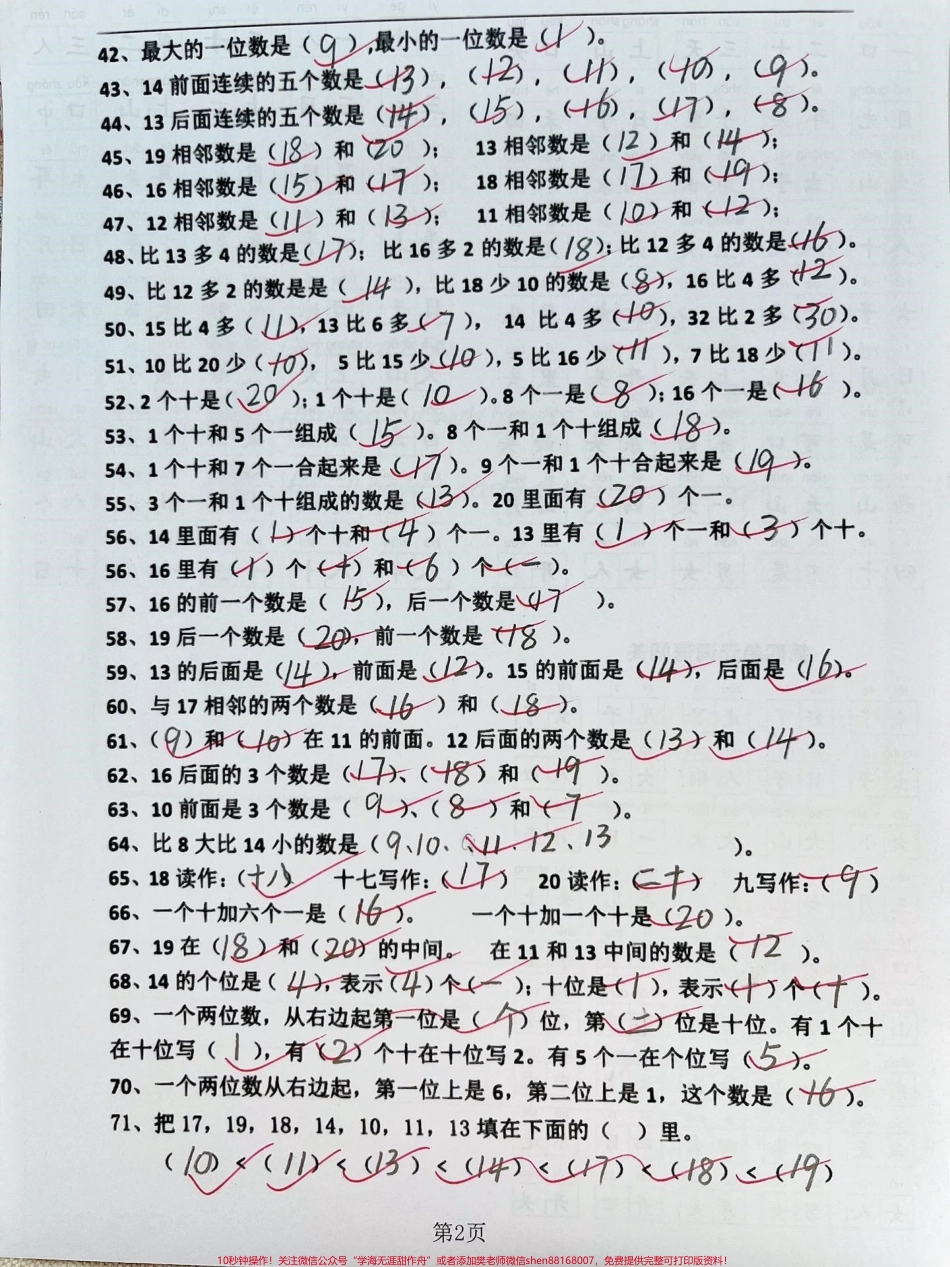 42、最大的一位数是（9），最小的一位数是（1）。
43、14前面连续的五个数是（13），（12），（11），（10），（9）。
44、13后面连续的五个数是（14），（15），（16），（17），（8）。
45、19相邻数是（18）和（20）； 13相邻数是（12）和（14）；
46、16相邻数是（15）和（17）； 18相邻数是（17）和（19）；
47、12相邻数是（11）和（13）； 11相邻数是（10）和（12）；
48、比13多4的数是（17）； 比16多2的数是（18）；比12多4的数是（16）。
49、比12多2的数是是（14），比18少10的数是（8），16比4多（12）。
50、15比4多（11），13比6多（7）， 14 比4多（10），32比2多（30）。
51、10比20少（10）， 5比15少（10），5比16少（11），7比18少（11）。
52、2个十是（20）；1个十是（10）。8个一是（8）；16个一是（16）。
53、1个十和5个一组成（15）。8个一和1个十组成（18）。
54、1个十和7个一合起来是（17）。9个一和1个十合起来是（19）。
55、3个一和1个十组成的数是（13）。20里面有（20）个一。
56、14里面有（1）个十和（4）个一。13里有（1）个一和（3）个十。
56、16里有（1）个（十）和（6）个（一）。
57、16的前一个数是（15），后一个数是（17）。
58、19后一个数是（20），前一个数是（18）。
59、13的后面是（14），前面是（12）。15的前面是（14），后面是（16）。
60、与17相邻的两个数是（16）和（18）。
61、（9）和（10）在11的前面。12后面的两个数是（13）和（14）。
62、16后面的3个数是（17）、（18）和（19）。
63、10前面是3个数是（9）、（8）和（7）。
64、比8大比14小的数是（9、10、11、12、13）。
65、18读作：（十八） 十七写作：（17） 20读作：（二十） 九写作：（9）
66、一个十加六个一是（16）。 一个十加一个十是（20）。
67、19在（18）和（20）的中间。 在11和13中间的数是（12）。
68、14的个位是（4），表示（4）个（一）；十位是（1），表示（1）个（十）。
69、一个两位数，从右边起第一位是（个）位，第（二）位是十位。有1个十
在十位写（1），有（2）个十在十位写2。有5个一在个位写（5）。
70、一个两位数从右边起，第一位上是6，第二位上是1，这个数是（16）。
71、把17，19，18，14，10，11，13填在下面的（ ）里。
（10）<（11）<（13）<（14）<（17）<（18）<（19）
第2页
10秒钟操作！关注微信公众号“学海无涯甜作舟”或者添加樊老师微信shen88168007，免费提供完整可打印版资料！